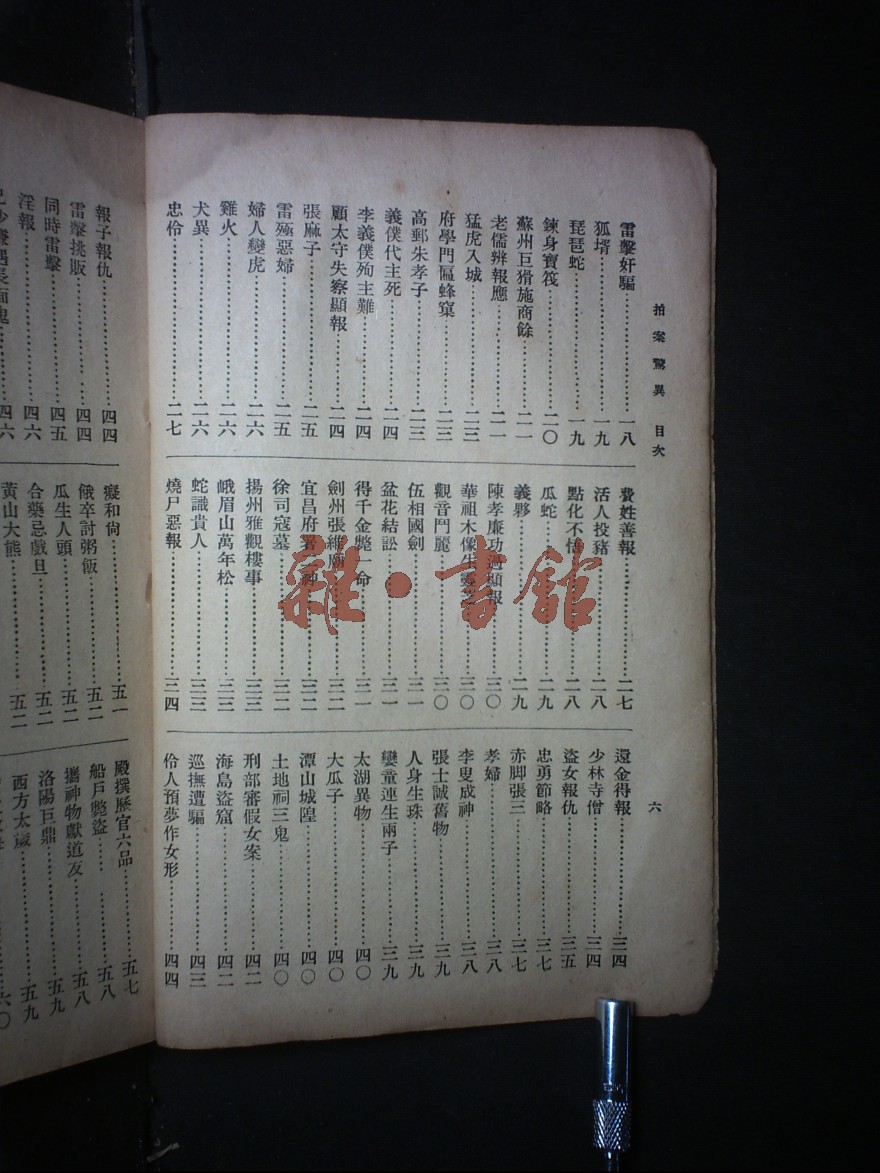 拍案驚異 目次
六
雷擊奸騙…………一八
狐壻…………一九
琵琶蛇…………一九
鍊身寶筏…………二〇
蘇州巨猾施商餘…………二一
老儒辨報應…………二一
猛虎入城…………二三
府學門匾蜂窠…………二三
高郵朱孝子…………二三
義僕代主死…………二四
李義僕殉主難…………二四
顧太守失察顯報…………二四
張麻子…………二五
雷殛惡婦…………二五
婦人變虎…………二六
雞火…………二六
犬異…………二六
忠伶…………二七
費姓善報…………二七
活人投豬…………二八
點化不悟…………二八
瓜蛇…………二九
義夥…………二九
陳孝廉功過顯報…………三〇
華祖木像生
觀音門麗…………三〇
伍相國劍…………三一
盆花結訟…………三一
得千金斃一命…………三一
劍州張維廟…………三二
宜昌府署二神…………三二
徐司寇墓…………三二
揚州雅觀樓事…………三三
峨眉山萬年松…………三三
蛇識貴人…………三三
燒尸惡報…………三四
還金得報…………三四
少林寺僧…………三四
盜女報仇…………三五
忠勇節略…………三七
赤脚張三…………三七
孝婦…………三八
李叟成神…………三八
張士誠舊物…………三九
人身生珠…………三九
孌童連生兩子…………三九
太湖異物…………四〇
大瓜子…………四〇
潭山城隍…………四〇
土地祠三鬼…………四〇
刑部審假女案…………四二
海島盜窟…………四二
巡撫遭騙…………四三
伶人預夢作女形…………四四
報子報仇…………四四
雷擊挑販…………四四
同時雷擊…………四五
淫報…………四六
遇長面鬼…………四六
癡和尙…………五一
俄卒討粥飯…………五二
瓜生人頭…………五二
合藥忌戲旦…………五二
黃山大熊…………五二
殿撰歷官六品…………五七
船戶斃盜…………五八
攜神物獻道友…………五八
洛陽巨鼎…………五九
西方太歲…………五九
六〇
雜·書館